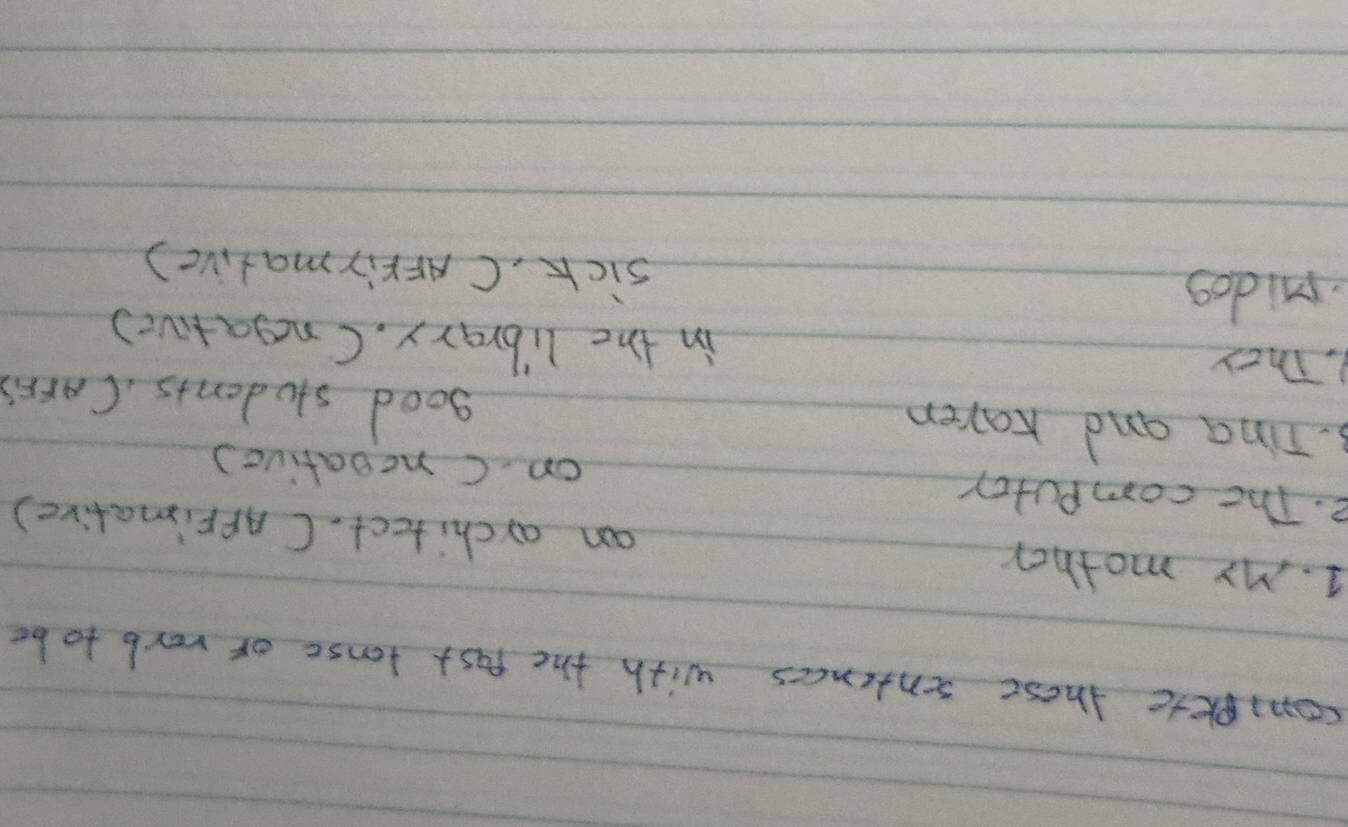 complete these sentences with the past tense of verb to be
1. My mother an architect. (AFFimative)
2. The computer on. (negative)
3. Tina and Karen good students. (AFFi
4. They in the library. (negative)
. Mi dog sick. (AFFirmative)